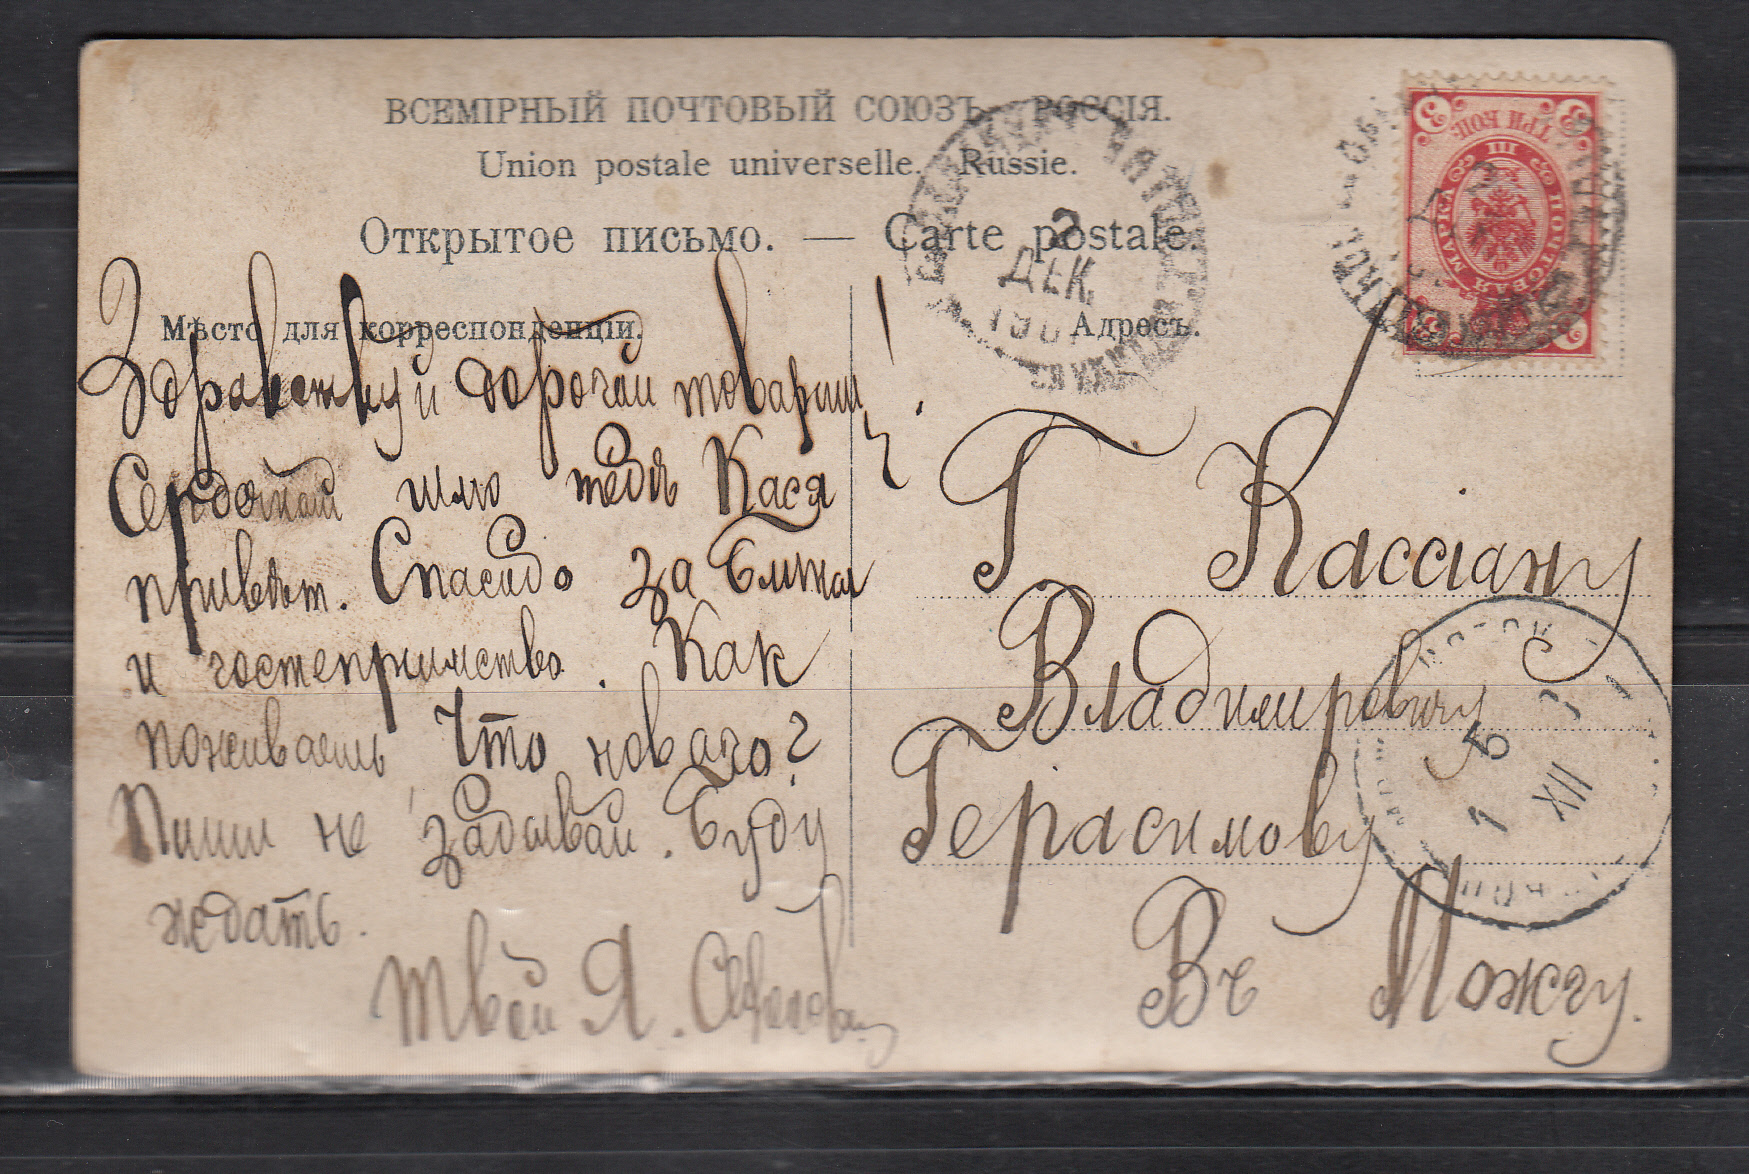 ВСЕМІРНЫЙ ПОЧТОВЫЙ СОЮЗЪ. РОССІЯ.
Union postale universelle. Russie.
Открытое письмо. — Carte postale.
Мѣсто для корреспонденціи.
Адресъ.
Здравствуй дорогой товарищ!
Сердечный шлю тебѣ Кася
привѣт. Спасибо за
и гостепримство. Как
поживаешь Что новаго?
Пиши не забывай. Буду
ждать.
твой Я.
Г Кассіану
Владимировичу
Герасимову
Въ Можгу.
2
ДЕК.
190
ТРИ КОП.
ПОЧТОВАЯ МАРКА
III
3
3
3
3
5
XII